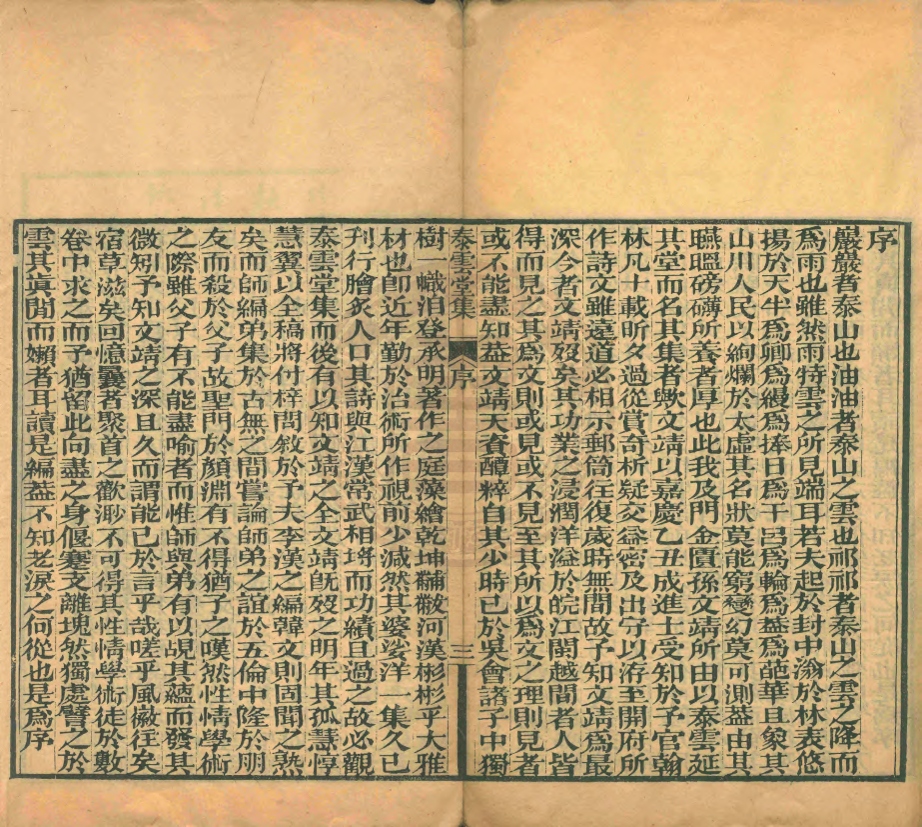 序
巖巖者泰山也油油者泰山之雲也祁祁者泰山之雲之降而
爲雨也雖然雨特雲之所見端耳若夫起於封中滃於林表悠
揚於天半爲卿爲縵爲捧日爲干呂爲輪爲葢爲葩華且象其
山川人民以絢爛於太虛其名狀莫能窮變幻莫可測葢由其
磅礴所養者厚也此我及門金匱孫文靖所由以泰雲延
其堂而名其集者歟文靖以嘉慶乙丑成進士受知於予官翰
林凡十載昕夕過從賞奇析疑交益密及出守以洊至開府所
作詩文雖遠道必相示郵筒往復歲時無間故予知文靖爲最
深今者文靖歿矣其功業之浸潤洋溢於皖江閩越間者人皆
得而見之其爲文則或見或不見至其所以爲文之理則見者
或不能盡知葢文靖天資醰粹自其少時已於吳會諸子中獨
泰雲堂集 序 三
樹一幟洎登承明著作之庭藻繪乾坤黼黻河漢彬彬乎大雅
材也卽近年勤於治術所作視前少減然其婆娑洋一集久已
刊行膾炙人口其詩與江漢常武相埒而功績且過之故必觀
泰雲堂集而後有以知文靖之全文靖旣歿之明年其孤慧惇
慧翼以全稿將付梓問敘於予夫李漢之編韓文則固聞之熟
矣而師編弟集於古無之間嘗論師弟之誼於五倫中隆於朋
友而殺於父子故聖門於顏淵有不得猶子之嘆然性情學術
之際雖父子有不能盡喻者而惟師與弟有以覘其蘊而發其
微矧予知文靖之深且久而謂能已於言乎哉嗟乎風徽往矣
宿草滋矣回憶曩者聚首之歡渺不可得其性情學術徒於數
卷中求之而予猶留此向盡之身偃蹇支離塊然獨處譬之於
雲其眞閒而嬾者耳讀是編葢不知老淚之何從也是爲序